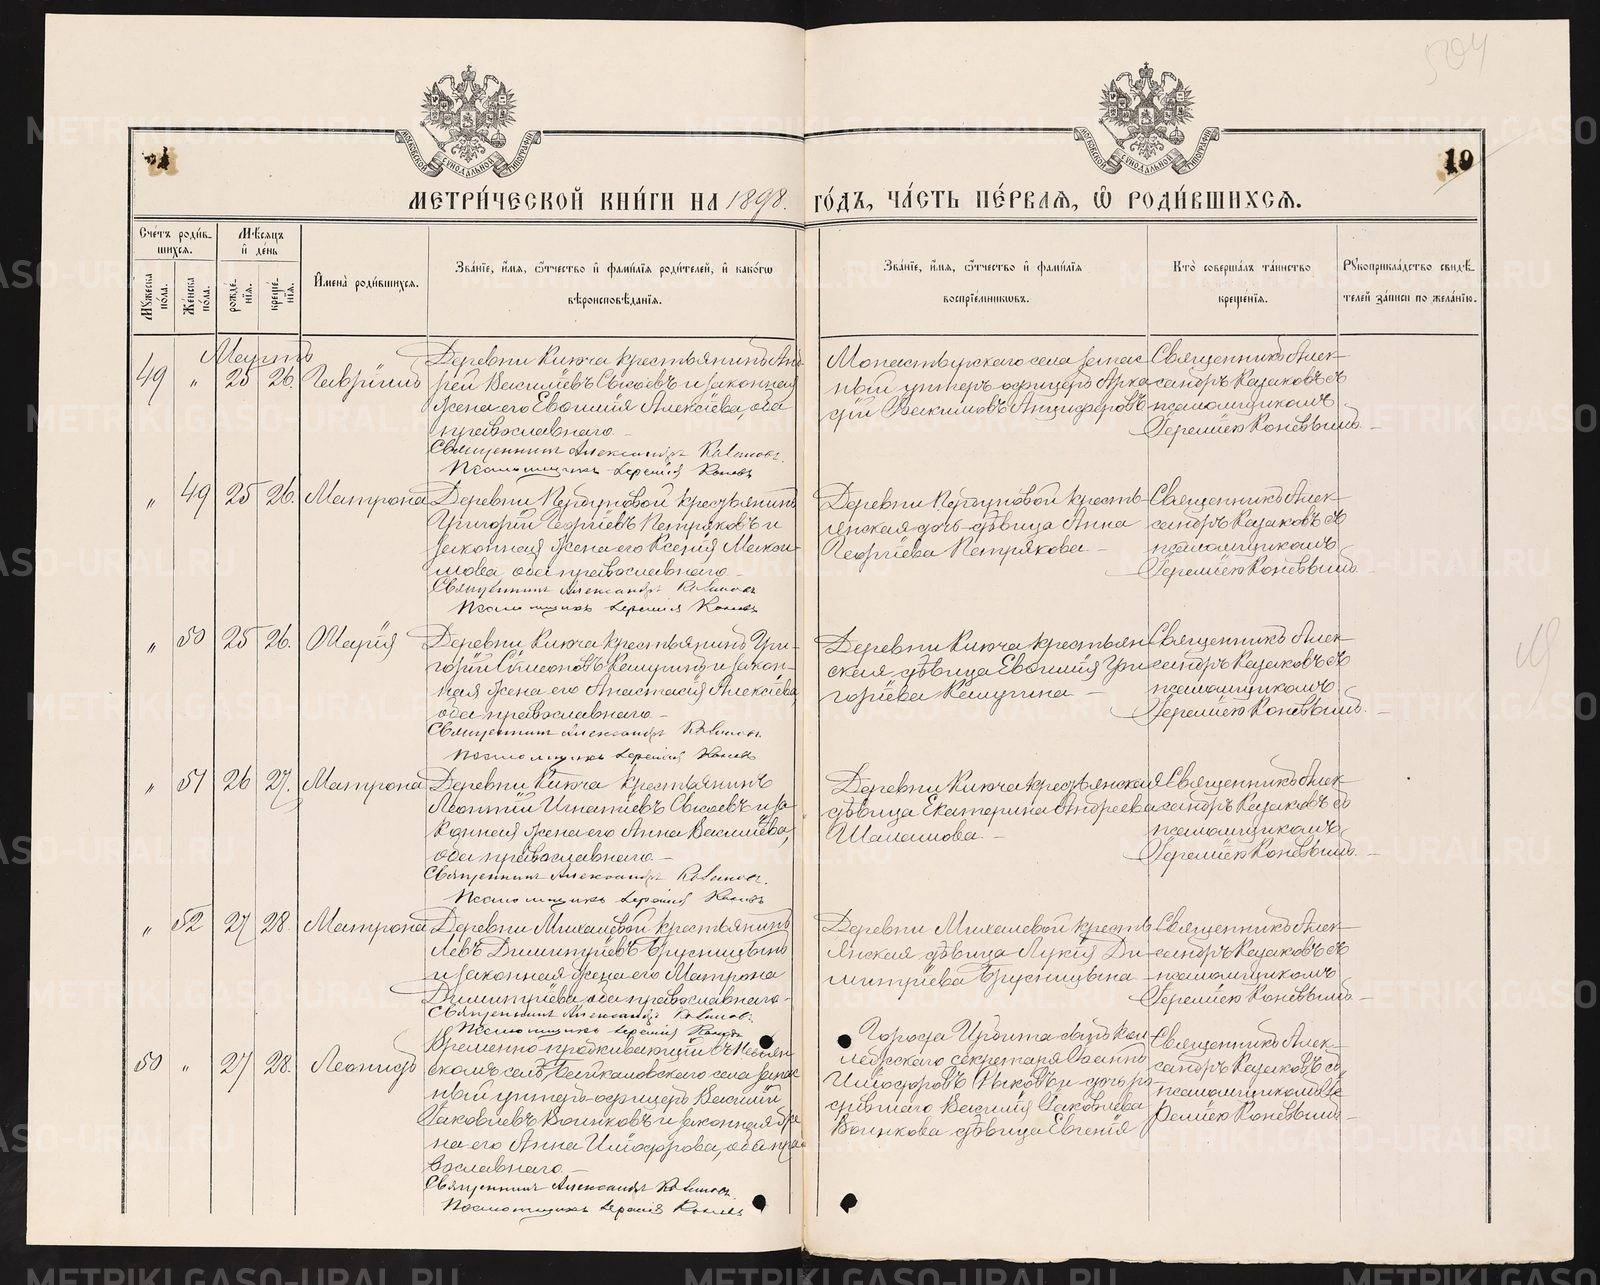 504
19
МЕТРИ́ЧЕСКОЙ КНИ́ГИ НА 1898. ГО́ДЪ, ЧА́СТЬ ПЕ́РВАЯ, Ѡ҆ РОДИ́ВШИХСЯ.
Сче́тъ роди́в-
шихся.
Мѣ́сяцъ
и҆ де́нь
Мꙋ́жеска по́ла.
Же́нска по́ла.
рожде́-
нїя.
креще́-
нїя.
И҆мена̀ роди́вшихся.
Зва́нїе, и҆́мя, ѻ҆́тчество и҆ фами́лїя роди́телей, и҆ како́гѡ
вѣроисповѣ́данїя.
Зва́нїе, и҆́мя, ѻ҆́тчество и҆ фами́лїя
воспрїе́мниковъ.
Кто̀ соверша́лъ та́инство
креще́нїя.
Рꙋкоприкла́дство свидѣ́-
телей за́писи по жела́нїю.
Мартъ
49 " 25 26. Гаврiилъ
Деревни Ключа крестьянинъ Анд-
рей Василiевъ Сысоевъ и законная
жена его Евѳимiя Алексiева, оба
православнаго
Священникъ Александръ Казаковъ.
Псаломщикъ Iеремiя Коневъ
Монастырскаго села запас-
ный унтеръ-офицеръ Арка-
дiй Анциферовъ
Священникъ Алек-
сандръ Казаковъ съ
псаломщикомъ
Iеремiею Коневымъ.
" 49 25 26. Матрона
Деревни крестьянинъ
Григорiй Георгiевъ Петряковъ и
законная жена его Ксенiя Макси-
мова, оба православнаго
Священникъ Александръ Казаковъ
Псаломщикъ Iеремiя Коневъ
Деревни кресть-
янская дочь дѣвица Анна
Георгiева Петрякова
Священникъ Алек-
сандръ Казаковъ съ
псаломщикомъ
Iеремiею Коневымъ.
" 50 25 26. Марiя
Деревни Ключа крестьянинъ Гри-
горiй Сѵмеоновъ и закон-
ная жена его Анастасiя Алексiева,
оба православнаго
Священникъ Александръ Казаковъ.
Псаломщикъ Iеремiя Коневъ
Деревни Ключа крестьян-
ская дѣвица Евѳимiя Гри-
горiева
Священникъ Алек-
сандръ Казаковъ съ
псаломщикомъ
Iеремiею Коневымъ.
" 51 26 27. Матрона
Деревни Ключа крестьянинъ
Леонтiй Игнатiевъ Сысоевъ и за-
конная жена его Анна Василiева,
оба православнаго
Священникъ Александръ Казаковъ.
Псаломщикъ Iеремiя Коневъ
Деревни Ключа крестьянская
дѣвица Екатерина Андреева
Шаламова
Священникъ Алек-
сандръ Казаковъ съ
псаломщикомъ
Iеремiею Коневымъ.
" 52 27 28. Матрона
Деревни Михалевой крестьянинъ
Левъ Димитрiевъ Брусницынъ
и законная жена его Матрона
Димитрiева, оба православнаго
Священникъ Александръ Казаковъ.
Псаломщикъ Iеремiя Коневъ
Деревни Михалевой кресть-
янская дѣвица Лукiя Ди-
митрiева Брусницына
Священникъ Алек-
сандръ Казаковъ съ
псаломщикомъ
Iеремiею Коневымъ
50 " 27 28. Леонидъ
Временно проживающiй въ
скомъ селѣ, села запас-
ный унтеръ-офицеръ Василiй
Iаковлевъ Воинковъ и законная же-
на его Анна оба пра-
вославнаго
Священникъ Александръ Казаковъ.
Псаломщикъ Iеремiя Коневъ
Города Ирбита сынъ Кол-
лежскаго секретаря
Рыковъ и дочь ро-
дившаго Василiя Iаковлева
Воинкова дѣвица Евгенiя
Священникъ Алек-
сандръ Казаковъ съ
псаломщикомъ Iе-
ремiею Коневымъ
19
METRIKI.GASO-URAL.RU